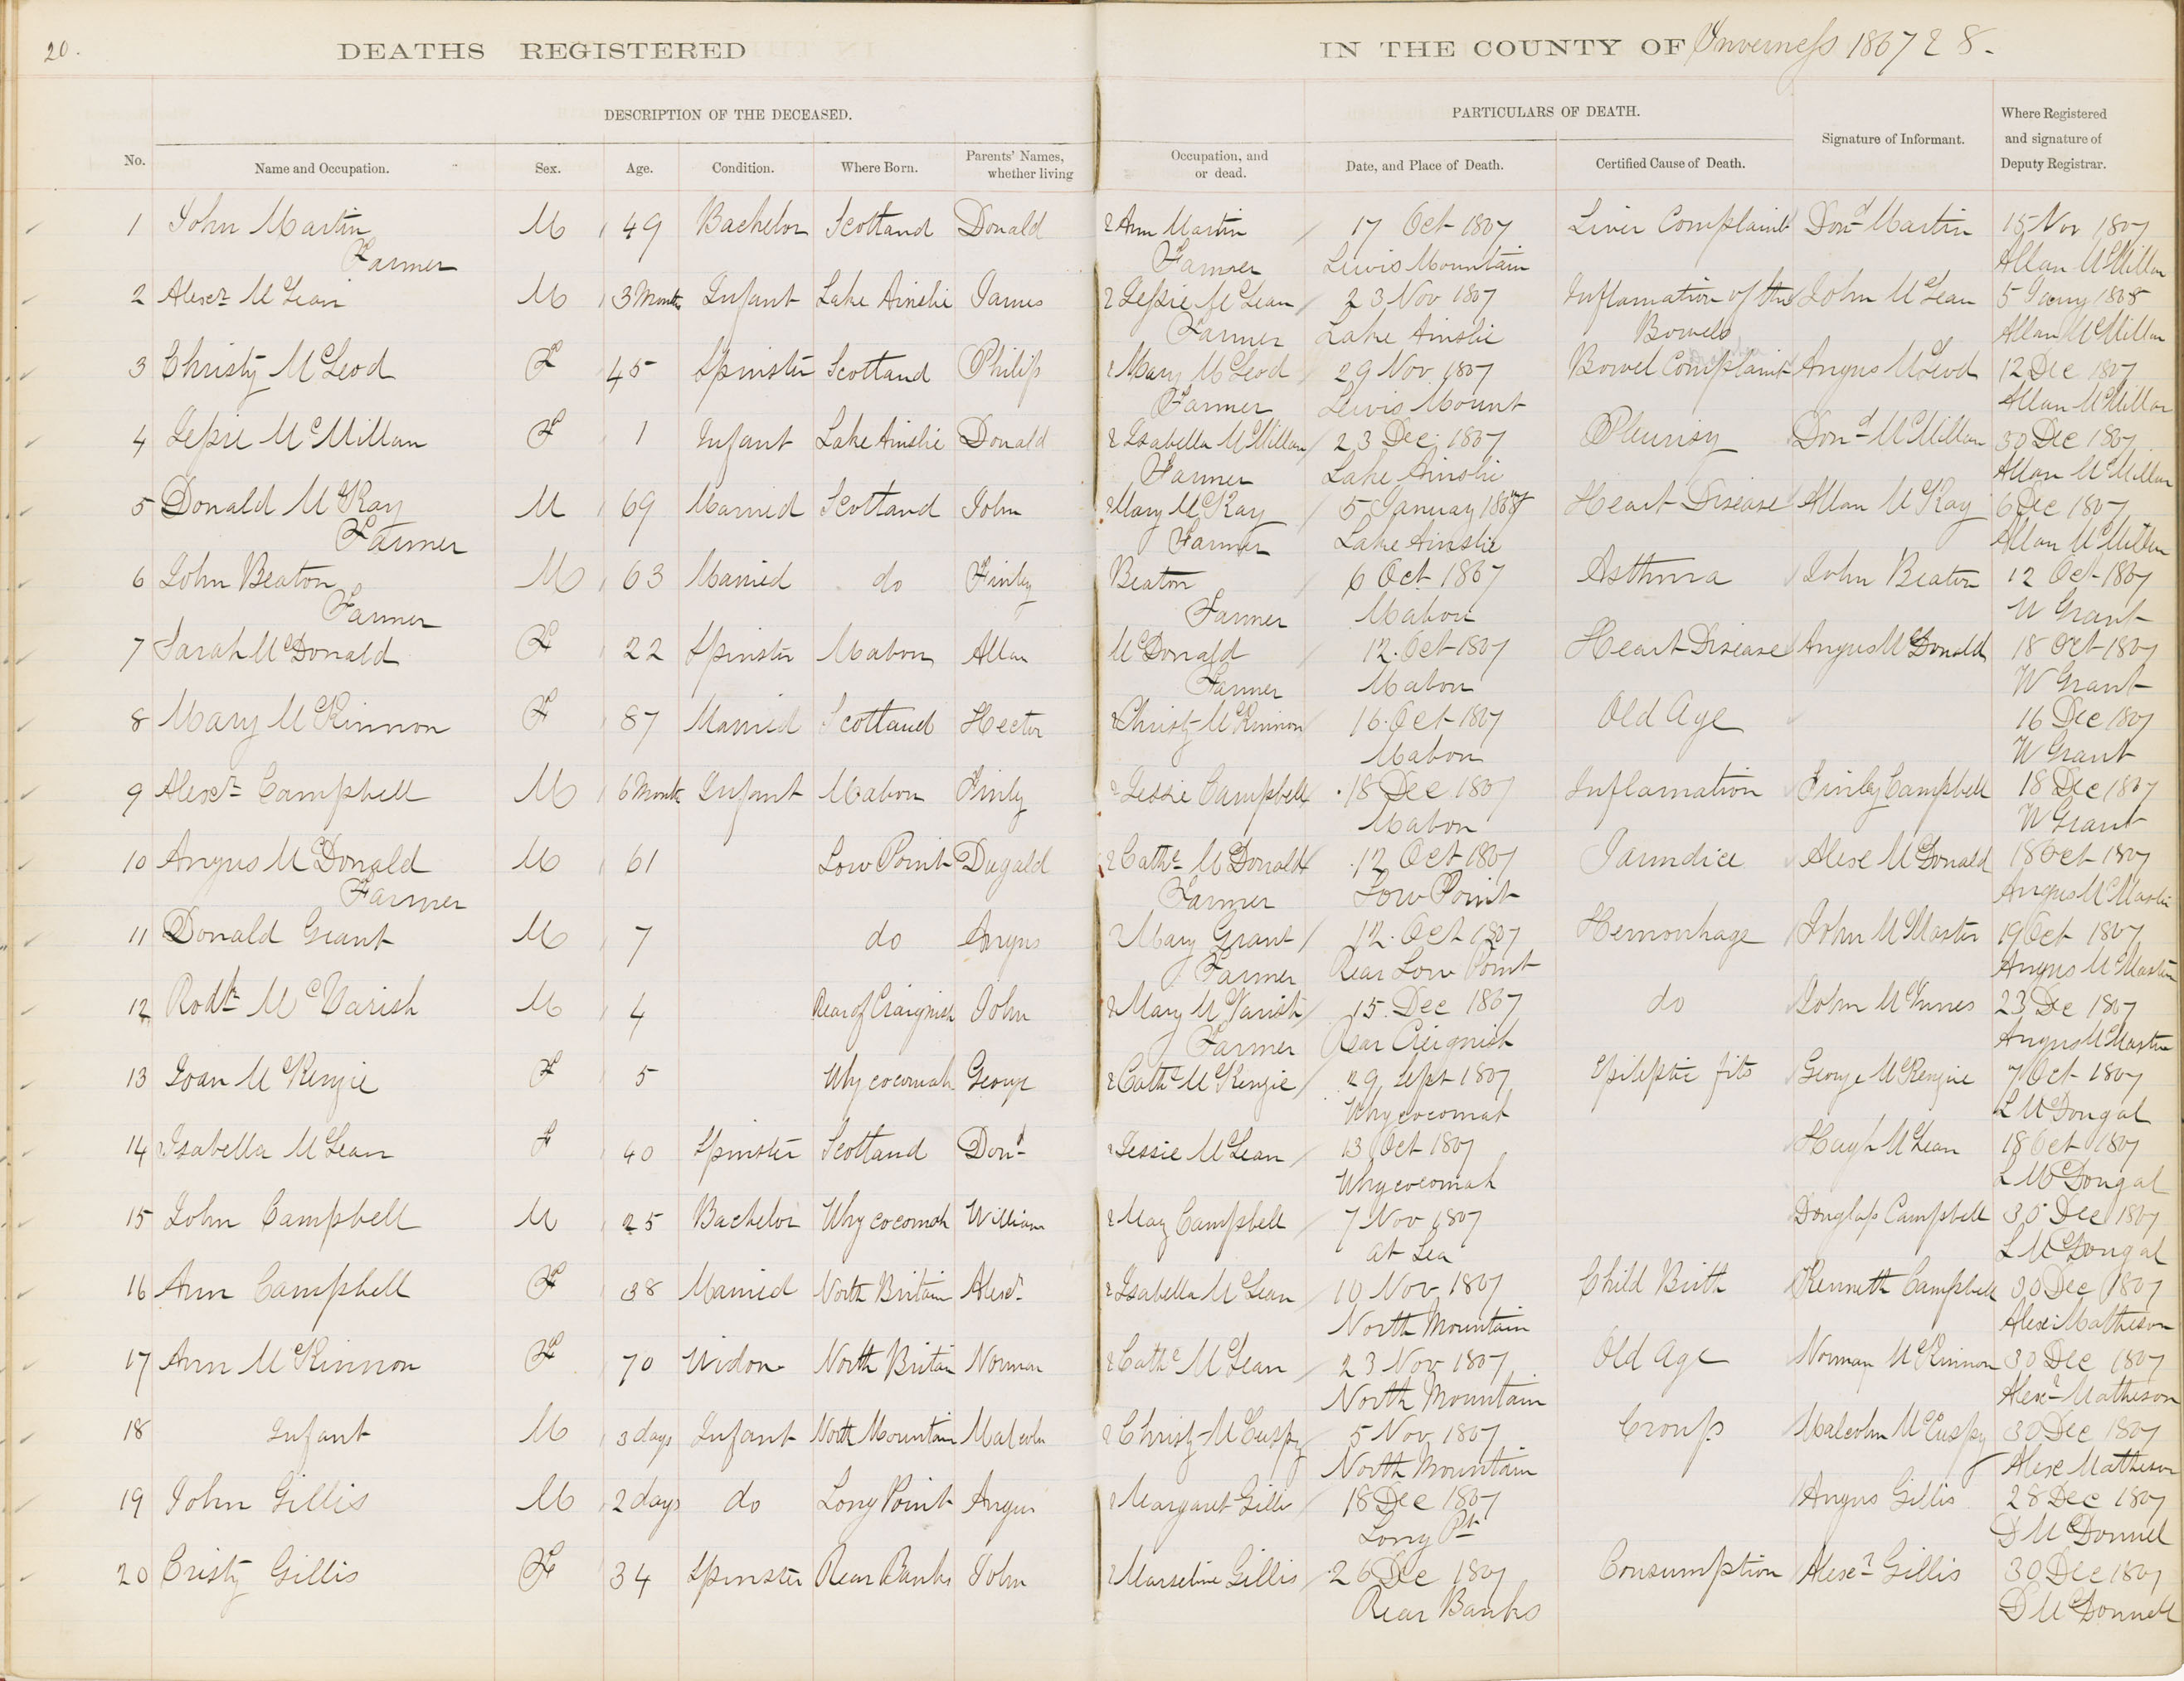 20.
DEATHS REGISTERED IN THE COUNTY OF Inverness 1867 & 8.
DESCRIPTION OF THE DECEASED. PARTICULARS OF DEATH.
No. Name and Occupation. Sex. Age. Condition. Where Born. Parents' Names, whether living Occupation, and or dead. Date, and Place of Death. Certified Cause of Death. Signature of Informant. Where Registered and signature of Deputy Registrar.
1 John Martin M 49 Bachelor Scotland Donald & Ann Martin 17 Oct 1867 Liver Complaint Dond Martin 15 Nov 1867
Farmer Farmer Lewis Mountain Allan McMillan
2 Alexr McLean M 3 Month Infant Lake Ainslie James & Jessie McLean 23 Nov 1867 Inflamation of the John McLean 5 Jany 1868
Farmer Lake Ainslie Bowels Allan McMillan
3 Christy McLeod F 45 Spinster Scotland Philip & Mary McLeod 29 Nov 1867 Bowel Complaint Angus McLeod 12 Dec 1867
Farmer Lewis Mount Allan McMillan
4 Jessie McMillan F 1 Infant Lake Ainslie Donald & Isabella McMillan 23 Dec 1867 Pleurisy Dond McMillan 30 Dec 1867
Farmer Lake Ainslie Allan McMillan
5 Donald McKay M 69 Married Scotland John & Mary McKay 5 January Heart Disease Allan McKay 6 Dec 1867
Farmer Farmer Lake Ainslie Allan McMillan
6 John Beaton M 63 Married do Finlay Beaton 6 Oct 1867 Asthma John Beaton 12 Oct 1867
Farmer Farmer Mabou W Grant
7 Sarah McDonald F 22 Spinster Mabou Allan McDonald 12 Oct 1867 Heart Disease Angus McDonald 18 Oct 1867
Farmer Mabou W Grant
8 Mary McKinnon F 87 Married Scotland Hector & Christy McKinnon 16 Oct 1867 Old Age 16 Dec 1867
Mabou W Grant
9 Alexr Campbell M 6 Month Infant Mabou Finly & Jessie Campbell 18 Dec 1867 Inflamation Finlay Campbell 18 Dec 1867
Mabou W Grant
10 Angus McDonald M 61 Low Point Dugald & Cathe McDonald 12 Oct 1867 Jaundice Alex McDonald 18 Oct 1867
Farmer Farmer Low Point Angus McMaster
11 Donald Grant M 7 do Angus & Mary Grant 12 Oct 1867 Hemorrhage John McMaster 19 Oct 1867
Farmer Rear Low Point Angus McMaster
12 Rodk McVarish M 4 Rear of Craignish John & Mary McVarish 15 Dec 1867 do John McInnes 23 De 1867
Farmer Rear Creignish Angus McMaster
13 Joan McKenzie F 5 Whycocomah George & Cathe McKenzie 29 Sept 1867 Epileptic fits George McKenzie 7 Oct 1867
Whycocomah L McDougal
14 Isabella McLean F 40 Spinster Scotland Dond & Jessie McLean 13 Oct 1867 Hugh McLean 18 Oct 1867
Whycocomah L McDougal
15 John Campbell M 25 Bachelor Whycocomah William & May Campbell 7 Nov 1867 Douglass Campbell 30 Dec 1867
at Sea L McDougal
16 Ann Campbell F 38 Married North Britain Alexr & Isabella McLean 10 Nov 1867 Child Birth Kenneth Campbell 30 Dec 1867
North Mountain Alex Matheson
17 Ann McKinnon F 70 Widow North Britain Norman & Cathe McLean 23 Nov 1867 Old Age Norman McKinnon 30 Dec 1867
North Mountain Alexr Matheson
18 Infant M 3 days Infant North Mountain Malcolm & Christy McCuspy 5 Nov 1867 Croup Malcolm McCuspy 30 Dec 1867
North Mountain Alex Matheson
19 John Gillis M 2 days do Long Point Angus & Margaret Gillis 18 Dec 1867 Angus Gillis 28 Dec 1867
Long Pt D McDonnel
20 Cristy Gillis F 34 Spinster Rear Banks John & Marseline Gillis 26 De 1867 Consumption Alexr Gillis 30 Dec 1867
Rear Banks D McDonnell